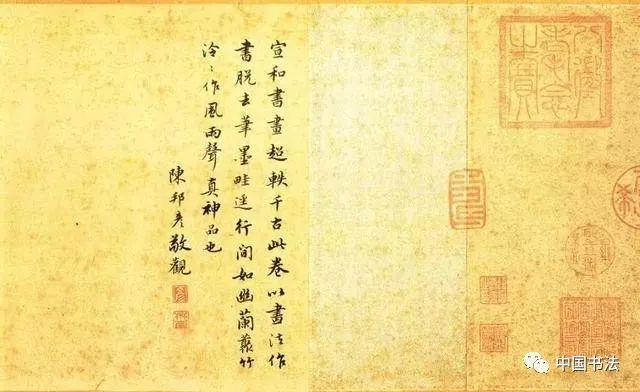 八徵耄念之寶
宣和書畫超軼千古此卷以畫法作
書脫去筆墨畦逕行間如幽蘭叢竹
泠〻作風雨聲真神品也
陳邦彥敬觀
中国书法